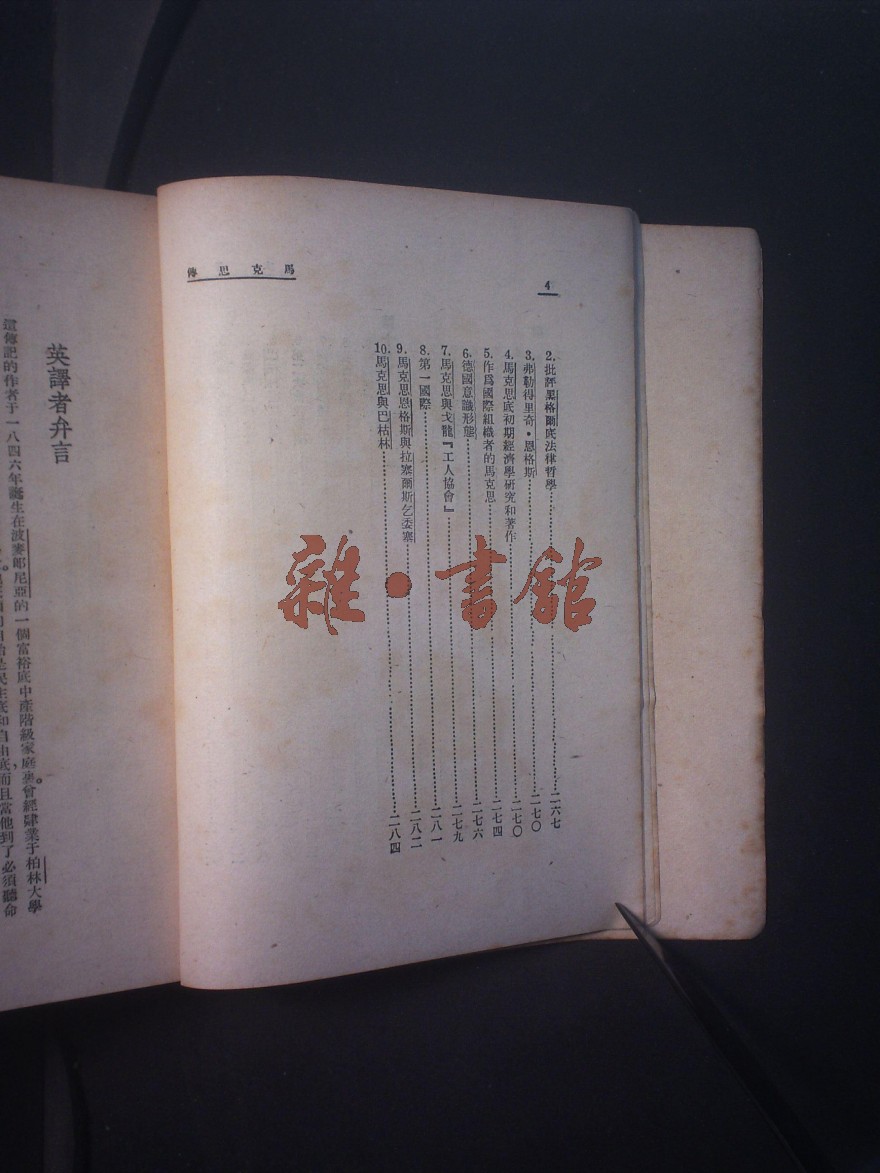 馬克思傳
4
2. 批評黑格爾底法律哲學……二六七
3. 弗勒得里奇·恩格斯……二七〇
4. 馬克思底初期經濟學研究和著作……二七〇
5. 作爲國際組織者的馬克思……二七四
6. 德國意識形態……二七六
7. 馬克思與戈龍『工人協會』……二七九
8. 第一國際……二八一
9. 馬克思恩格斯與拉塞爾斯乞委塞……二八二
10. 馬克思與巴枯林……二八四
英譯者弁言
這傳記的作者于一八四六年誕生在波麥耶尼亞的一個富裕底中產階級家庭裏。曾經肄業于柏林大學
而且當他到了必須聽命
雜·書館